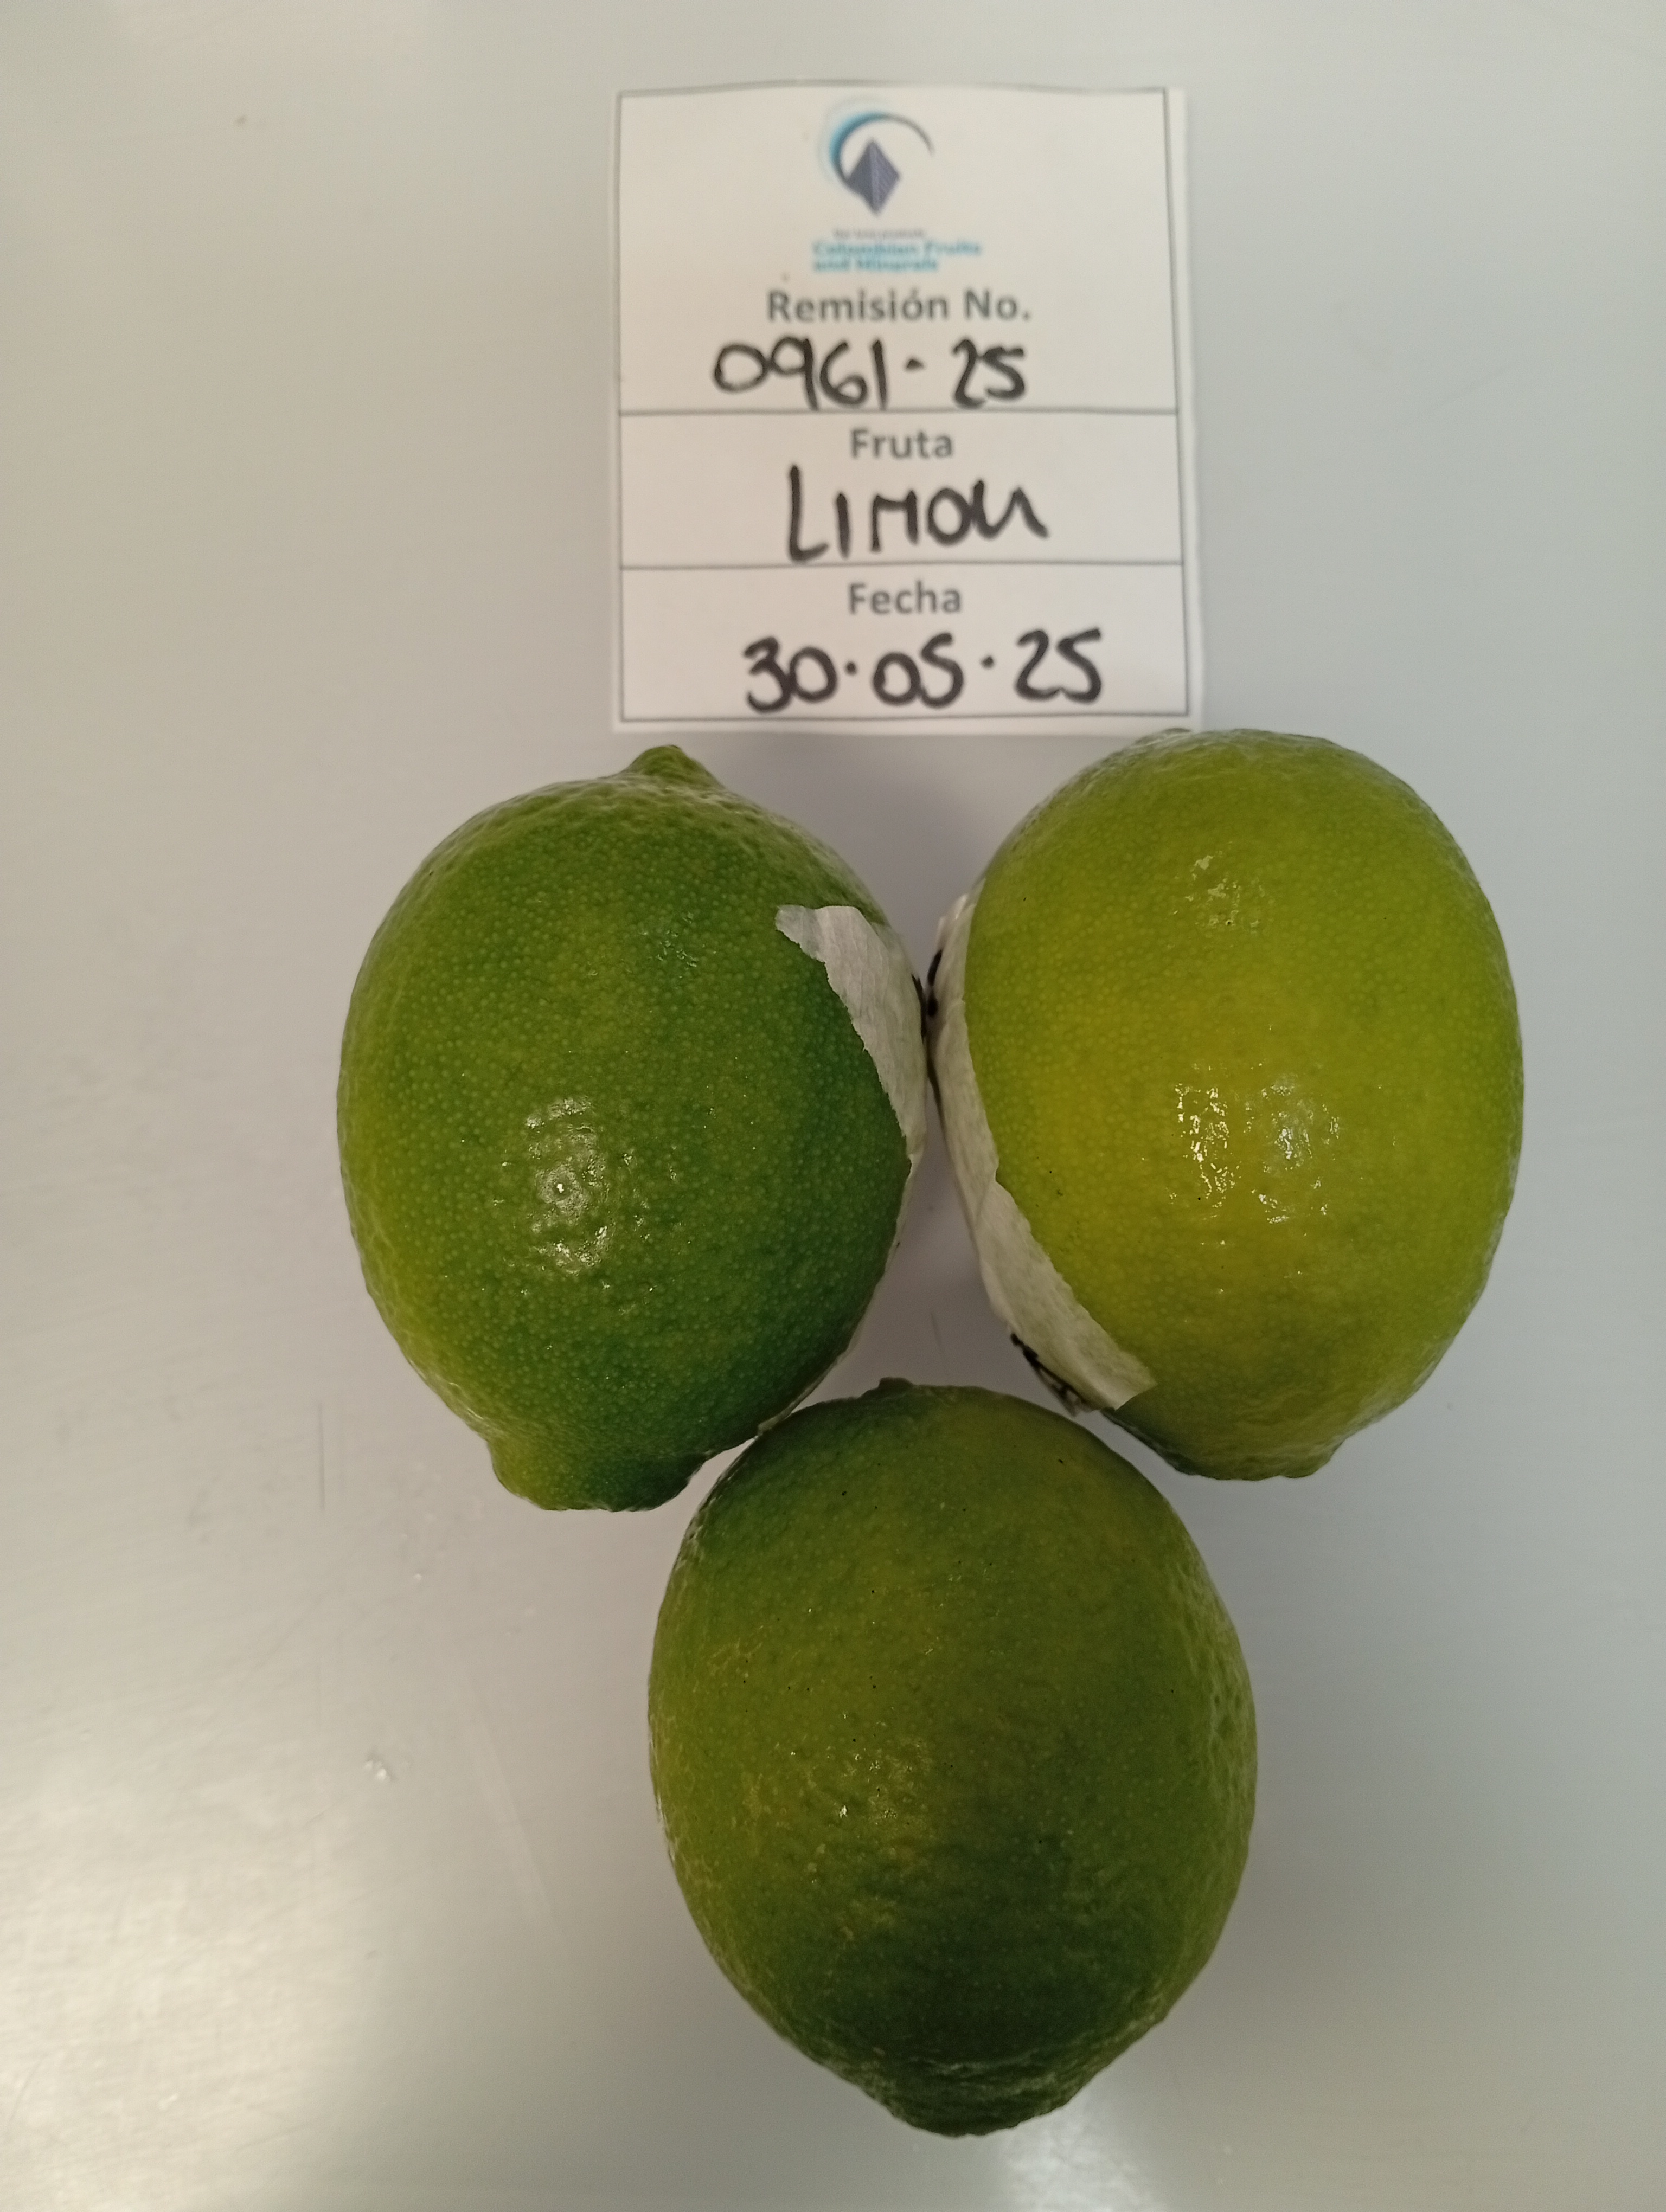 Colombian Fruits
and Minerals
Remisión No.
0961-25
Fruta
LIMON
Fecha
30·05·25